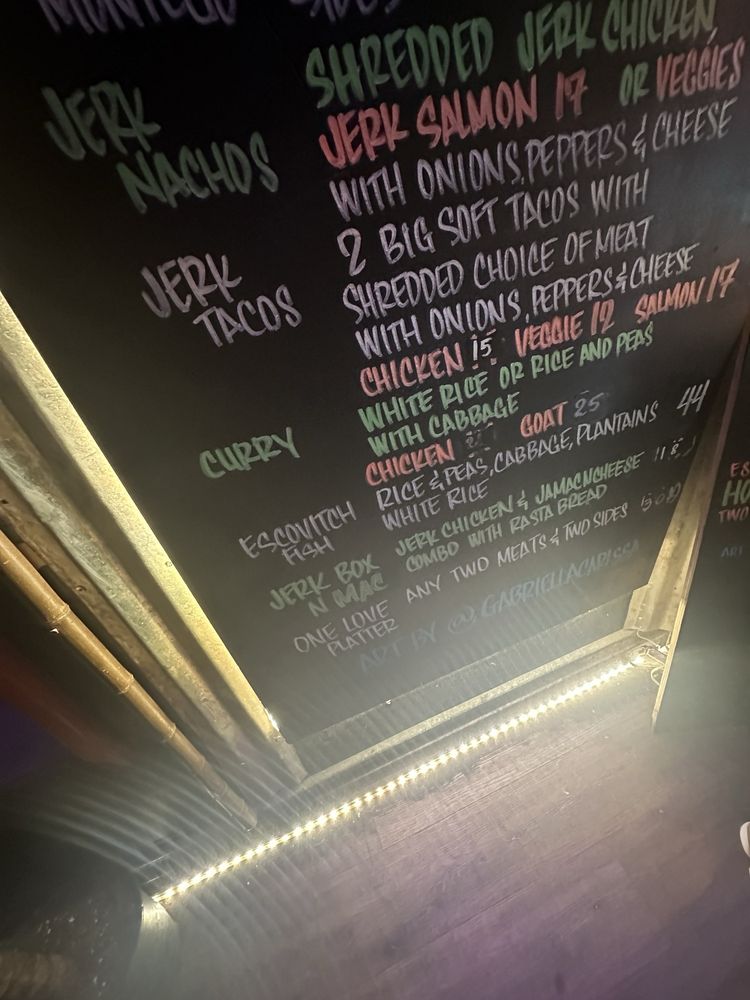 MONTEGO SIDES
SHREDDED JERK CHICKEN,
JERK JERK SALMON 17 OR VEGGIES
NACHOS WITH ONIONS, PEPPERS & CHEESE
2 BIG SOFT TACOS WITH
JERK SHREDDED CHOICE OF MEAT
TACOS WITH ONIONS, PEPPERS & CHEESE
CHICKEN 15 VEGGIE 12 SALMON 17
WHITE RICE OR RICE AND PEAS
CURRY WITH CABBAGE
CHICKEN GOAT 25
RICE & PEAS, CABBAGE, PLANTAINS 44
ESCOVITCH WHITE RICE
FISH
JERK BOX JERK CHICKEN & JAMACNCHEESE
N MAC COMBO WITH RASTA BREAD
ONE LOVE ANY TWO MEATS & TWO SIDES
PLATTER
ART BY @GABRIELLACARISSA
TWO
ART